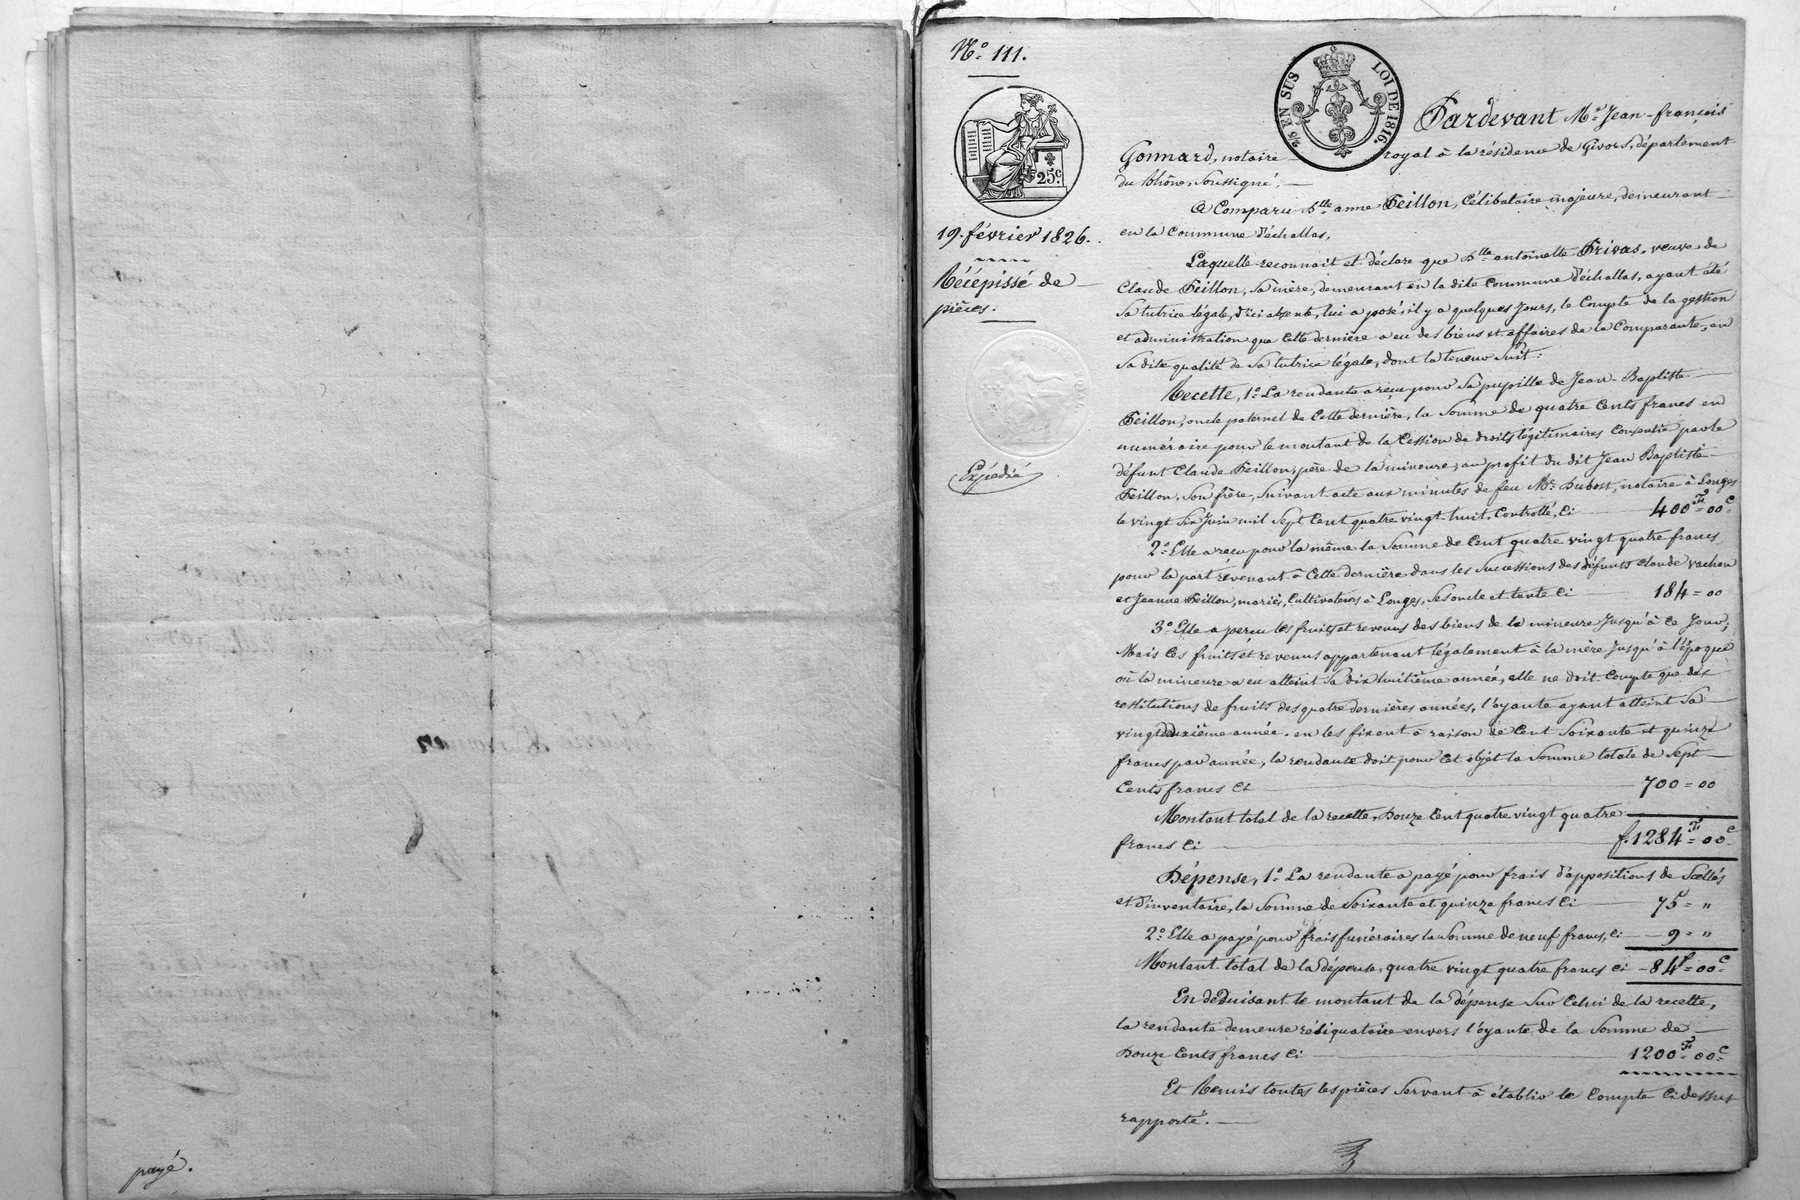 payé.
N.° 111.
25c.
19. février 1826.
Récépissé de
pièces.
Expédié
2/5 EN SUS LOI DE 1816.
Pardevant M.e Jean-françois
Gonnard, notaire royal à la résidence de Givors, département
du Rhône, Soussigné,
A Comparu D.lle anne Feillon, Célibataire majeure, demeurant
en la Commune d'échallas,
Laquelle reconnait et déclare que D.lle antoinette Privas, veuve de
Claude Feillon, Sa mère, demeurant en la dite Commune d'échallas, ayant été
Sa tutrice légale, d'ici absente, lui a posé, il y a quelques jours, le Compte de la gestion
et administration que Cette dernière a eu des biens et affaires de la Comparante, en
Sa dite qualité de Sa tutrice légale, dont la teneur Suit:
Recette, 1.° La rendante a reçu pour Sa pupille de Jean-Baptiste
Feillon, oncle paternel de Cette dernière, la Somme de quatre Cents francs en
numéraire pour le montant de la Cession de droits légitimaires Consentie par le
défunt Claude Feillon, père de la mineure, au profit du dit Jean Baptiste
Feillon, Son frère, Suivant acte aux minutes de feu M.e Dubost, notaire à Longes
le vingt Six Juin mil Sept Cent quatre vingt huit, Controllé, Ci 400F=00C
2.° Elle a reçu pour la même la Somme de Cent quatre vingt quatre francs,
pour la part revenant à Cette dernière dans les Successions des défunts Claude Vachon
et Jeanne Feillon, mariés, Cultivateurs à Longes, Ses oncle et tante Ci 184=00
3.° Elle a perçu les fruits et revenus des biens de la mineure Jusqu'à Ce Jour;
Mais Ces fruits et revenus appartenant légalement à la mère Jusqu'à l'époque
où la mineure a eu atteint Sa dix huitième année, elle ne doit Compte que des
restitutions de fruits des quatre dernières années, l'oyante ayant atteint Sa
vingt deuxième année. en les fixant à raison de Cent Soixante et quinze
francs par année, la rendante doit pour Cet objet la Somme totale de Sept
Cents francs Ci 700=00
Montant total de la recette, Douze Cent quatre vingt quatre
francs Ci f.1284F=00C
Dépense, 1.° La rendante a payé pour frais d'appositions de Scellés
et d'inventaire, la Somme de Soixante et quinze francs Ci 75=„
2.° Elle a payé pour frais funéraires la Somme de neuf francs, Ci 9=„
Montant total de la dépense, quatre vingt quatre francs Ci 84F=00C
En déduisant le montant de la dépense Sur Celui de la recette,
la rendante demeure réliquataire envers l'oyante de la Somme de
Douze Cents francs Ci 1200F=00C
Et Remis toutes les pièces Servant à établir le Compte Ci dessus
rapporté.